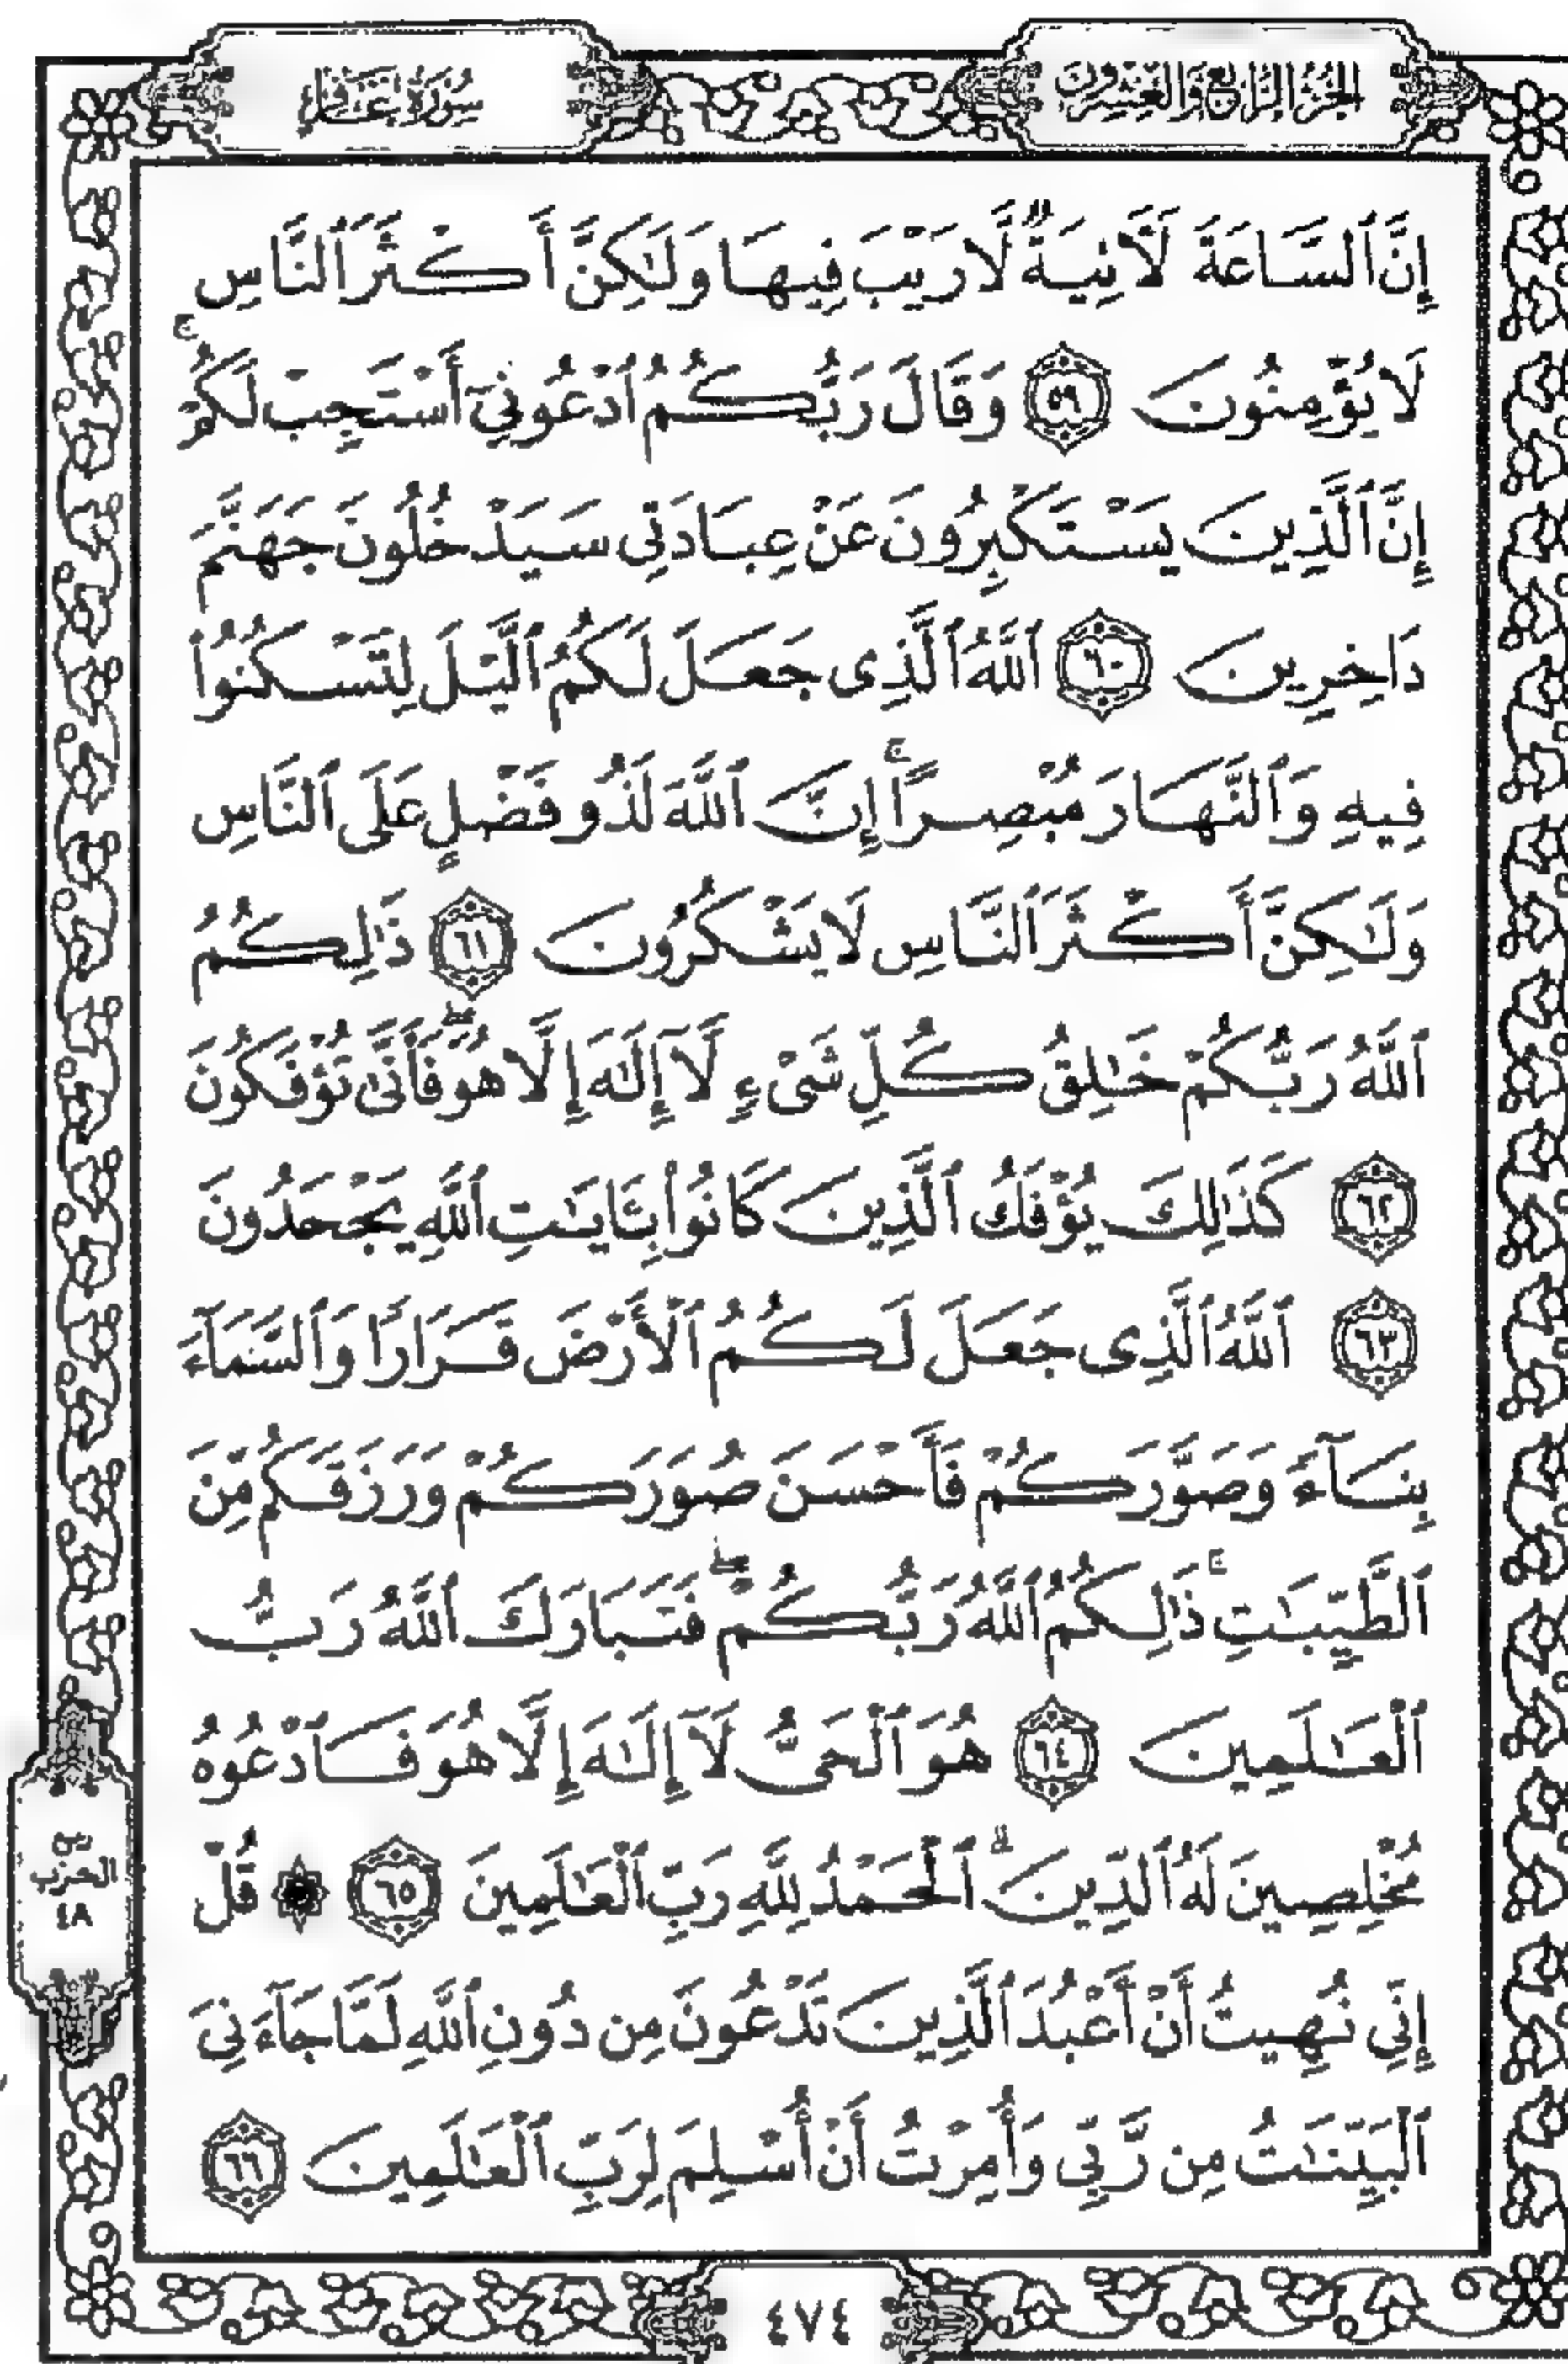 الجزء الرابع والعشرون
سورة غافر
إِنَّ ٱلسَّاعَةَ لَأٓتِيَةٌ لَّا رَيْبَ فِيهَا وَلَٰكِنَّ أَكْثَرَ ٱلنَّاسِ
لَا يُؤْمِنُونَ ٥٩ وَقَالَ رَبُّكُمُ ٱدْعُونِيٓ أَسْتَجِبْ لَكُمْۚ
إِنَّ ٱلَّذِينَ يَسْتَكْبِرُونَ عَنْ عِبَادَتِى سَيَدْخُلُونَ جَهَنَّمَ
دَاخِرِينَ ٦٠ ٱللَّهُ ٱلَّذِى جَعَلَ لَكُمُ ٱلَّيْلَ لِتَسْكُنُوا۟
فِيهِ وَٱلنَّهَارَ مُبْصِرًاۚ إِنَّ ٱللَّهَ لَذُو فَضْلٍ عَلَى ٱلنَّاسِ
وَلَٰكِنَّ أَكْثَرَ ٱلنَّاسِ لَا يَشْكُرُونَ ٦١ ذَٰلِكُمُ
ٱللَّهُ رَبُّكُمْ خَٰلِقُ كُلِّ شَىْءٍ لَّآ إِلَٰهَ إِلَّا هُوَۖ فَأَنَّىٰ تُؤْفَكُونَ
٦٢ كَذَٰلِكَ يُؤْفَكُ ٱلَّذِينَ كَانُوا۟ بِـَٔايَٰتِ ٱللَّهِ يَجْحَدُونَ
٦٣ ٱللَّهُ ٱلَّذِى جَعَلَ لَكُمُ ٱلْأَرْضَ قَرَارًا وَٱلسَّمَآءَ
بِنَآءً وَصَوَّرَكُمْ فَأَحْسَنَ صُوَرَكُمْ وَرَزَقَكُم مِّنَ
ٱلطَّيِّبَٰتِۚ ذَٰلِكُمُ ٱللَّهُ رَبُّكُمْۖ فَتَبَارَكَ ٱللَّهُ رَبُّ
ٱلْعَٰلَمِينَ ٦٤ هُوَ ٱلْحَىُّ لَآ إِلَٰهَ إِلَّا هُوَ فَٱدْعُوهُ
مُخْلِصِينَ لَهُ ٱلدِّينَۗ ٱلْحَمْدُ لِلَّهِ رَبِّ ٱلْعَٰلَمِينَ ٦٥ ۞ قُلْ
إِنِّى نُهِيتُ أَنْ أَعْبُدَ ٱلَّذِينَ تَدْعُونَ مِن دُونِ ٱللَّهِ لَمَّا جَآءَنِىَ
ٱلْبَيِّنَٰتُ مِن رَّبِّى وَأُمِرْتُ أَنْ أُسْلِمَ لِرَبِّ ٱلْعَٰلَمِينَ ٦٦
ربع
الحزب
٤٨
٤٧٤